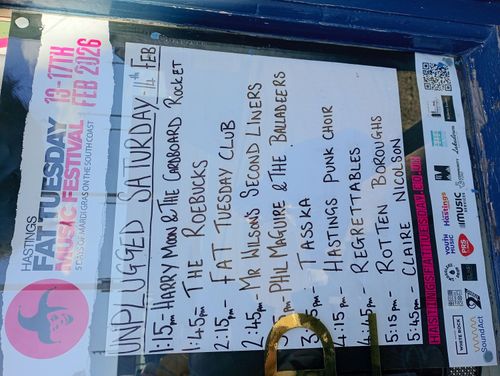 HASTINGS
FAT TUESDAY
MUSIC FESTIVAL
5 DAYS OF MARDI GRAS ON THE SOUTH COAST
13-17TH
FEB 2026
UNPLUGGED SATURDAY - 14th FEB
1:15pm - HARRY MOON & THE CARDBOARD ROCKET
1:45pm THE ROEBUCKS
2:15pm - FAT TUESDAY CLUB
2:45pm - MR WILSON'S SECOND LINERS
PHIL MAGUIRE & THE BALLADEERS
TASSKA
4:15pm - HASTINGS PUNK CHOIR
4:45pm REGRETTABLES
5:15pm - ROTTEN BOROUGHS
5:45pm - CLAIRE NICOLSON
HASTINGSFATTUESDAY.CO.UK
WHITE ROCK
YOUTH MUSIC
Hastings
PRS
MUSIC
SoundAct